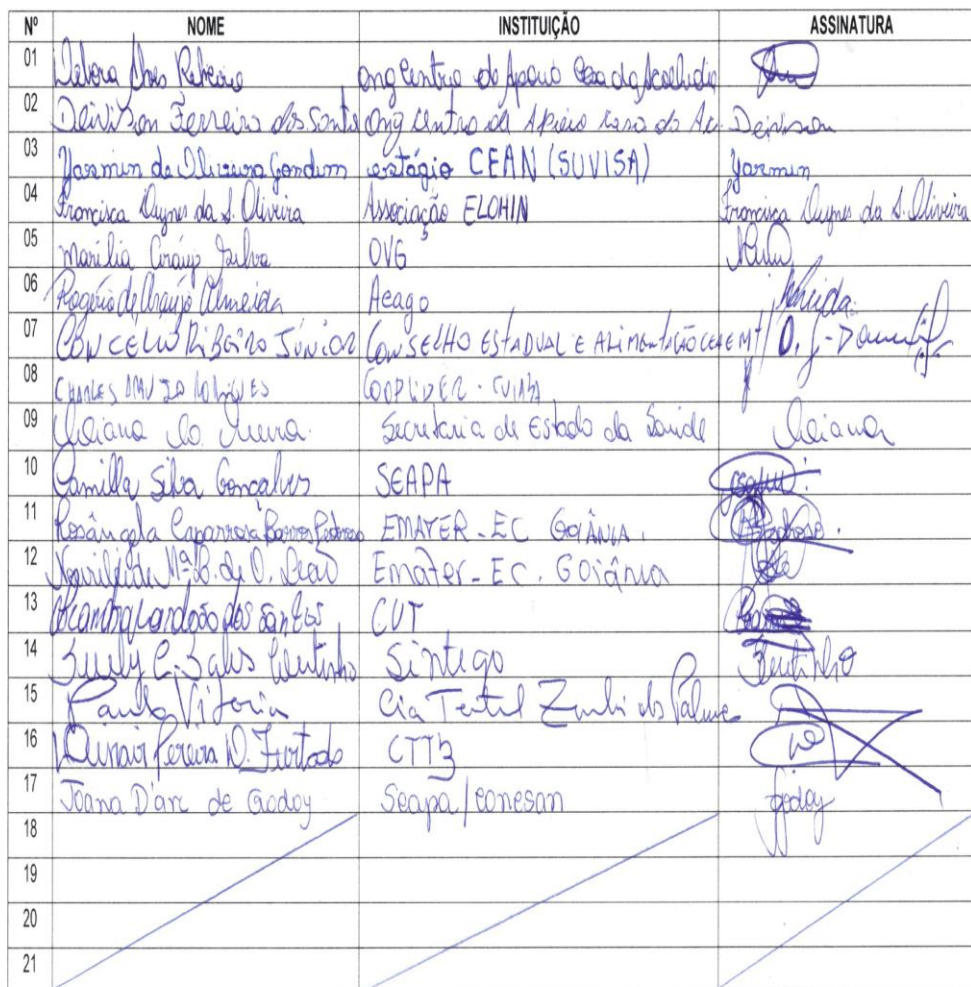 Nº NOME INSTITUIÇÃO ASSINATURA
01 Debora Ribeiro ong Centro de Apoio Casa da
02 Deivison Ferreira dos Santos Ong Centro de Apoio casa do Ac. Deivison
03 Yasmin de Oliveira Gondim estágio CEAN (SUVISA) Yasmin
04 Francisca da S. Oliveira Associação ELOHIN Francisca da S. Oliveira
05 Marilia Araújo Silva OVG
06 Rogério de Araújo Almeida Acago Almeida
07 RIBEIRO JÚNIOR CONSELHO ESTADUAL E ALIMENTAÇÃO
08 CHARLES
09 Secretaria de Estado da Saúde
10 Camilla Silva Gonçalves SEAPA
11 Rosângela Barros Pedroso EMATER-EC GOIÂNIA.
12 Mª B. de O. Leão Emater-Ec. Goiânia
13 dos santos CUT
14 Suely C. Sales Coutinho Sintego Coutinho
15 Paulo Vitoria Cia Teatral Zumbi dos Palmares
16 Pereira D. Furtado CTTB
17 Joana D'arc de Godoy Seapa/conesan Godoy
18
19
20
21